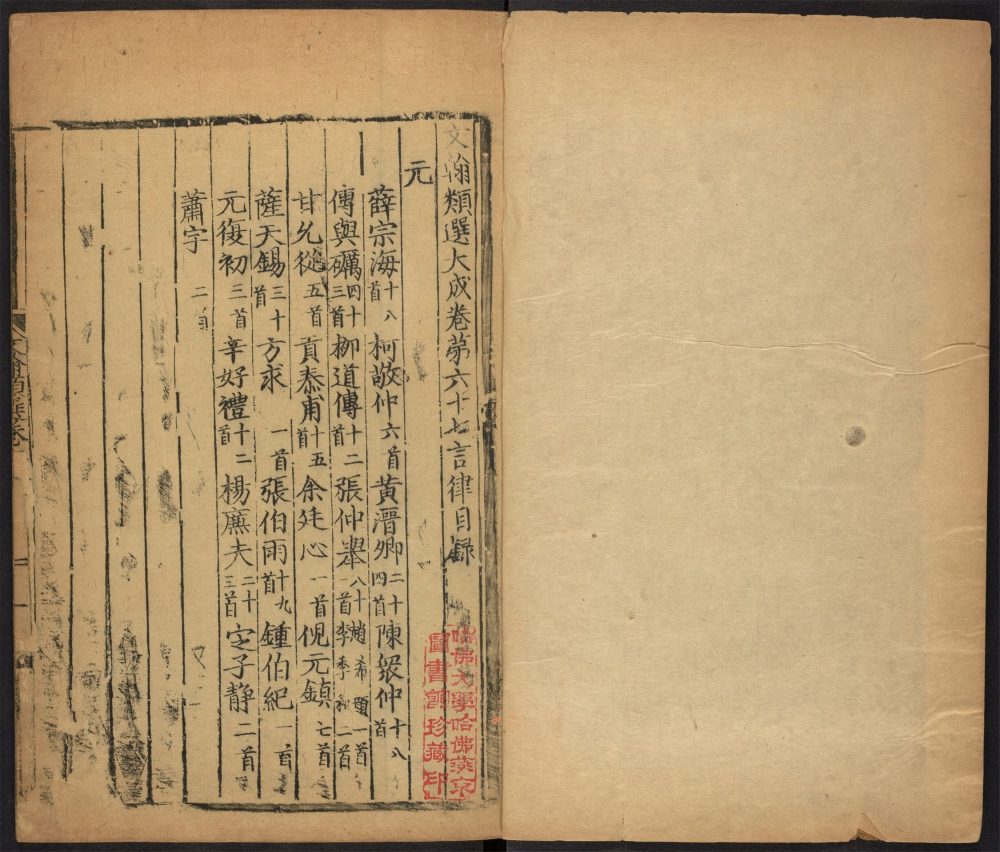 文翰類選大成卷第六十七言律目錄
元
薛宗海十八首 柯敬仲六首 黃溍卿二十四首 陳衆仲十八首
傅與礪四十三首 柳道傳十二首 張仲舉八十一首 趙希顗一首 李季和二首
甘允從五首 貢泰甫十五首 余廷心一首 倪元鎮七首
薩天錫三十首 方求一首 張伯雨十九首 鍾伯紀一首
元復初三首 辛好禮十二首 楊廉夫二十三首 定子靜二首
蕭字二首
哈佛大學哈佛燕京
圖書館珍藏印